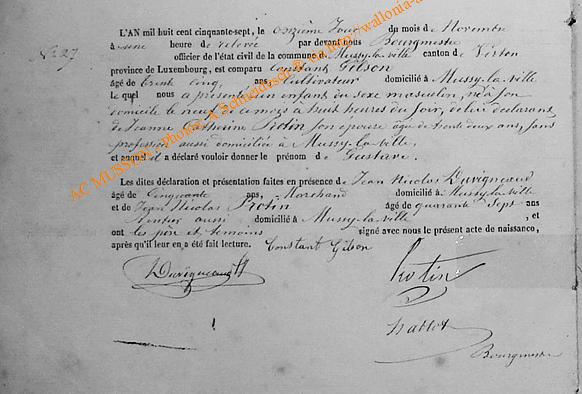 N° 27
L'AN mil huit cent cinquante-sept, le onzième Jour du mois de Novembre
à une heure de relevée par devant nous Bourgmestre
officier de l'état civil de la commune de Mussy-la-ville canton de Virton
province de Luxembourg, est comparu Constant Gilson
âgé de trente cinq ans, Cultivateur domicilié à Mussy-la-ville
le quel nous a présenté un enfant du sexe masculin, né à son
domicile le neuf de ce mois à huit heures du soir, de lui déclarant
et de Jeanne Catherine Protin son épouse âgée de trente deux ans, sans
profession aussi domiciliée à Mussy-la-ville
et auquel il a déclaré vouloir donner le prénom de Gustave.
Les dites déclaration et présentation faites en présence de Jean Nicolas Duvigneaud
âgé de Cinquante ans, Marchand domicilié à Mussy-la-ville
et de Jean Nicolas Protin âgé de quarante Sept ans
Rentier aussi domicilié à Mussy-la-ville, et
ont les père et temoins signé avec nous le présent acte de naissance,
après qu'il leur en a été fait lecture. Constant Gilson
Duvigneaud Protin
Bourgmestre
AC MUSSON - Photos: A Schneidesch © via http://wallonia-